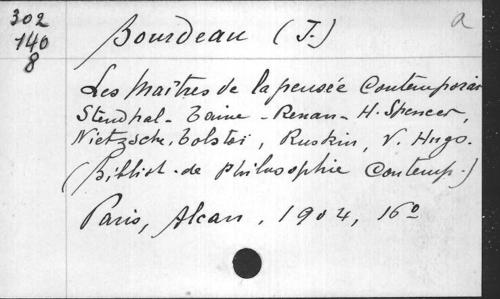 302
140
8
Bourdeau (J.)
a
Les maîtres de la pensée Contemporai
Stendhal - Taine - Renan - H. Spencer,
Nietzsche, Tolstoï, Ruskin, V. Hugo.
(Biblioth. de Philosophie Contemp.)
Paris, Alcan, 1904, 16º